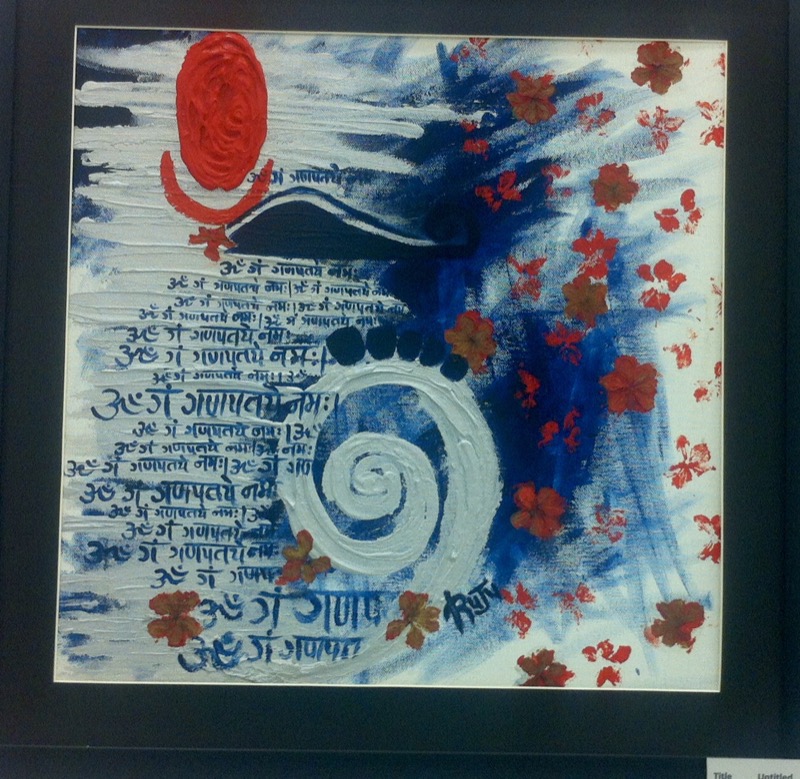 ॐ गं गणपतये
ॐ गं गणपतये नमः
ॐ गं गणपतये नमः|ॐ गं गणपतये नम
ॐ गं गणपतये नमः|ॐ गं गणपतये
ॐ गं गणपतये नमः|ॐ गं गणपतये नमः
ॐ गं गणपतये नमः
ॐ गं गणपतये नमः|
ॐ गं गणपतये नमः|ॐ
ॐ गं गणपतये नमः|
ॐ गं गणपतये नमः|ॐ
ॐ गं गणपतये नमः|ॐ
ॐ गं गणपतये नमः|ॐ गं गण
ॐ गं गणपतये नमः
ॐ गं गणपतये नमः|ॐ
ॐ गं गणपतये नमः
ॐ गं गणपतये नमः
ॐ गं गणप
ॐ गं गणप
RUTU
ॐ गं गणपत
Title Untitled